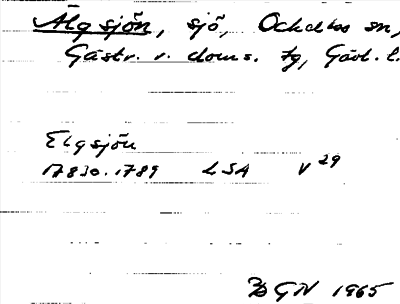 Älgsjön, sjö, Ockelbo sn,
Gästr. v. doms. tg, Gävl. l.
Elgsjön
17830.1789 LSA V29
GN 1965